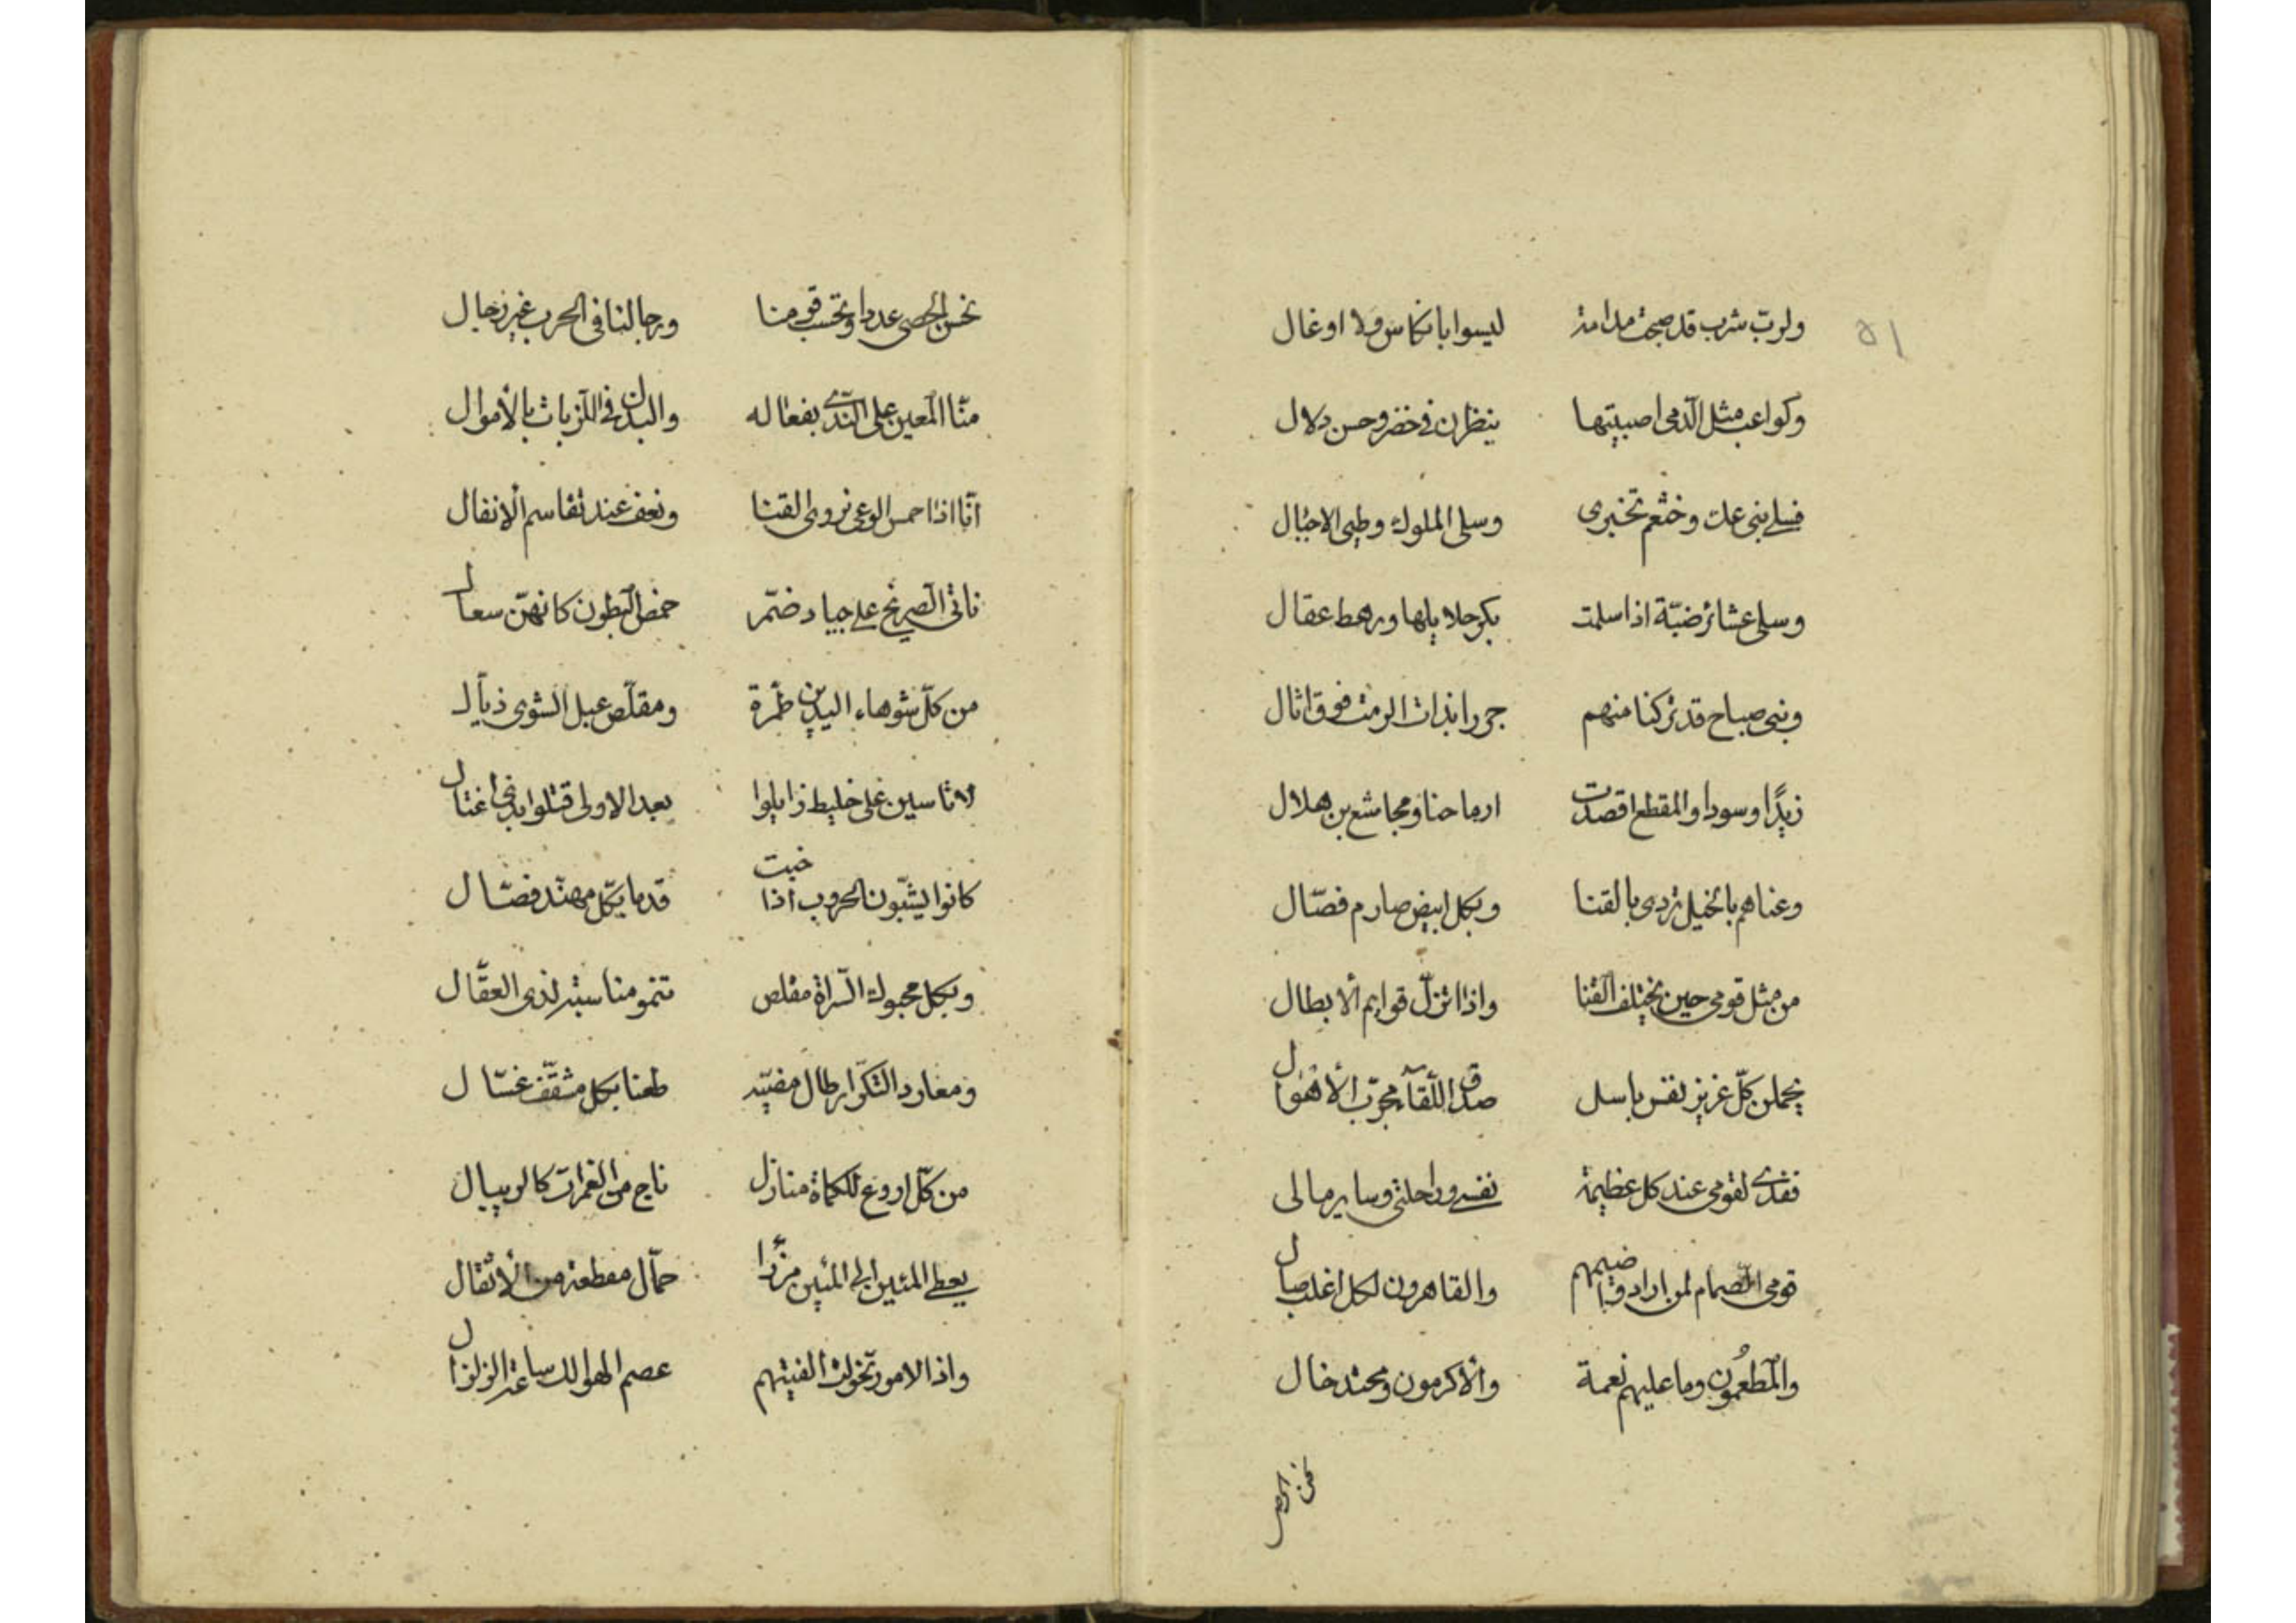 ولربّ شرب قد صبحت مدامة ليسوا بانكاس ولا اوغال
٥١
وكواعب مثل الدمى اصبيتها ينظرن في خفر وحسن دلال
فسلي بني عك وخثعم تخبري وسلي الملوك وطيي الاجبال
وسلي عشائر ضبّة اذا سلمت بكر حلايلها ورهط عقال
وبني صباح قد تركنا منهم جزرا بذات الرمث فوق اثال
زيدًا وسودا والمقطع اقصدت ارماحنا ومجاشع بن هلال
رعناهم بالخيل تردي بالقنا وبكل ابيض صارم فصّال
من مثل قومي حين يختلف القنا واذا تزلّ قوايم الأبطال
يحملن كلّ عزيز نفس باسل صدق اللّقاء مجرّب الأهوال
ففدى لقومي عند كل عظيمة نفسي وراحلتي وساير مالي
قومي الصمام لمن اراد ضيمهم والقاهرون لكل اغلب صال
والمطعمُون وما عليهم نعمة والأكرمون ومحتد خال
نحن الحصى
نحن الحصى عددا وتحسب قومنا ورجالنا في الحرب غير رجال
منّا المعين على النّدى بفعاله والبدل في اللزبات بالأموال
انّا اذا حمس الوغى نروي القنا ونعف عند تقاسم الأنفال
ناتي الصريخ على جياد ضمّر خمص البطون كانهنّ سعال
من كلّ شوهاء اليدين طمرّة ومقلّص عبل الشوى ذيّال
لا تاسين على خليط زايلوا بعد الاولى قتلوا بذي اغتال
كانوا يشبّون الحروب اذا خبت قدما بكلّ مهنّد فصّال
وبكل محبوك السّراة مقلص تنمو مناسبه لذي العقّال
ومعاود التكرار طال مضيّه طعنا بكل مثقّف عسّال
من كلّ اروع للكماة منازل ناج من الغمرات كالريبال
يعطي المئين الى المئين مرزّءا حمّال مفظعة من الأثقال
واذا الامور تخولت الفيتهم عصم الهوالك ساعة الزلزال